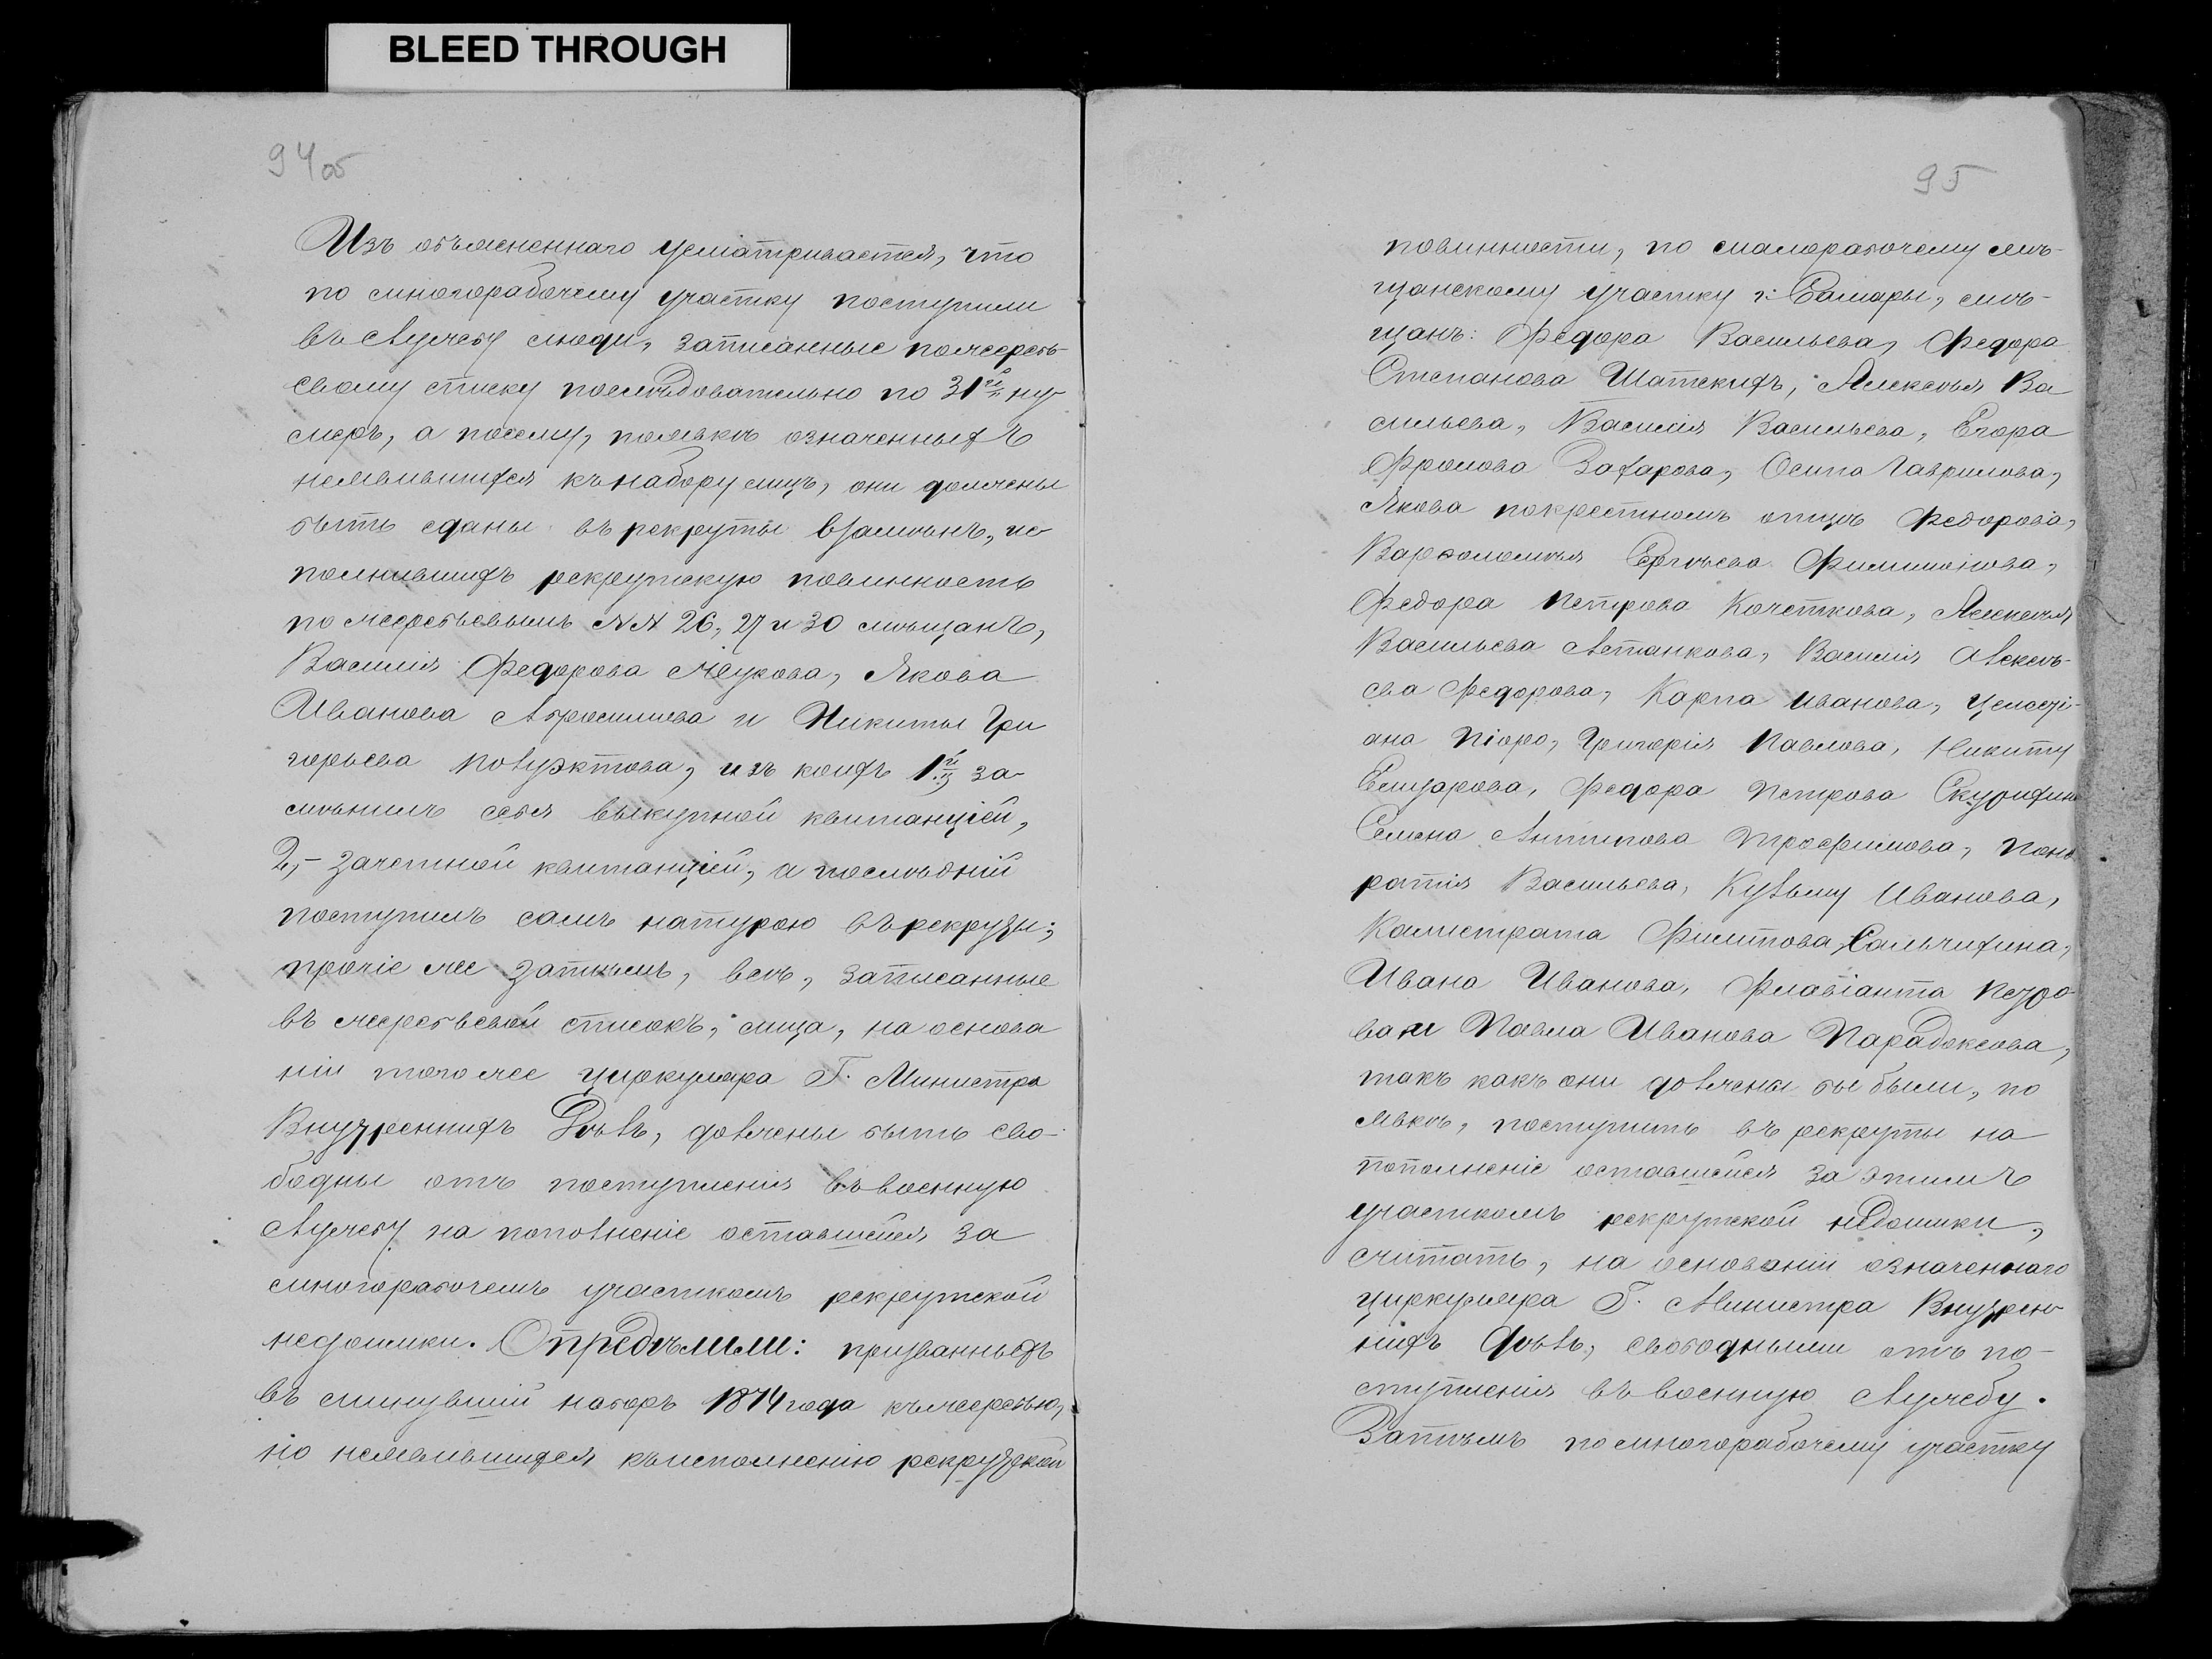 BLEED THROUGH
94об
Изъ объясненнаго усматривается, что
по многорабочему участку поступили
въ службу люди, записанные пожеребь-
евому списку последовательно по 31й ну-
меръ, а посему, появкѣ означенныхъ
неявившихся къ набору лицъ, они должны
быть сданы въ рекруты взамѣнъ, ис
полнившихъ рекрутскую повинность
по жеребьевымъ №№ 26, 27 и 30 мѣщанъ,
Василія Федорова Жукова, Якова
Иванова Абросимова и Никиты Гри
горьева Полуэктова, изъ коихъ 1й за-
мѣнилъ себя выкупной квитанціей,
2,- зачетной квитанціей, а послѣдній
поступилъ самъ натурою въ рекруты;
прочіе же затѣмъ, всѣ, записанные
въ жеребьевой списокъ, лица, на основа
ніи того же циркуляра Г. Министра
Внутреннихъ Дѣлъ, должны быть сво-
бодны отъ поступленія въ военную
службу на пополненіе оставшейся за
многорабочемъ участкомъ рекрутской
недоимки. Опредѣлили: призванныхъ
въ минувшій наборъ 1874 года къ жеребью,
но неявившихся къ исполненію рекрутской
95
повинности, по малорабочему мѣ-
щанскому участку г. Самары, мѣ-
щанъ: Федора Васильева, Федора
Степанова Шатскихъ, Алексѣя Ва
сильева, Василія Васильева, Егора
Фролова Захарова, Осипа Гаврилова,
Якова покрестномъ отцѣ Федорова,
Варфоломѣя Сергѣева Филимонова,
Федора Петрова Кочеткова, Алексѣя
Васильева Астанкова, Василія Алексѣ-
ева Федорова, Карпа Иванова,
ана Піоро, Григорія Павлова, Никиту
Елизарова, Федора Петрова
Семена Антипова Трофимова, Панк
ратія Васильева, Кузьму Иванова,
Калистрата Филипова Сальчихина,
Ивана Иванова, Флавіанта Педро
ва и Павла Иванова Парадоксова,
такъ какъ они должны бы были, по
явкѣ, поступить въ рекруты на
пополненіе оставшейся за этимъ
участкомъ рекрутской недоимки,
считать, на основаніи означеннаго
циркуляра Г. Министра Внутрен
нихъ Дѣлъ, свободными отъ по-
ступленія въ военную службу.
Затѣмъ по многорабочему участку